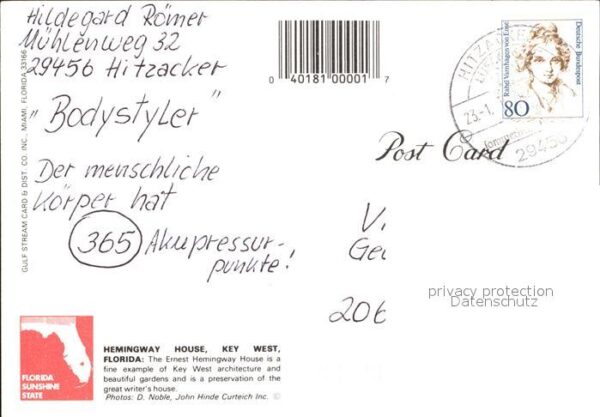 Hildegard Römer
Mühlenweg 32
29456 Hitzacker
"Bodystyler"
Der menschliche
Körper hat
365 Akupressur-
punkte!
GULF STREAM CARD & DIST. CO. INC., MIAMI, FLORIDA 33166
0 40181 00001 7
Deutsche Bundespost
Rahel Varnhagen von Ense
80
HITZACKER
23.-1.
29456
Post Card
V
Ge
206
privacy protection
Datenschutz
FLORIDA
SUNSHINE
STATE
HEMINGWAY HOUSE, KEY WEST,
FLORIDA: The Ernest Hemingway House is a
fine example of Key West architecture and
beautiful gardens and is a preservation of the
great writer's house.
Photos: D. Noble, John Hinde Curteich Inc. ©